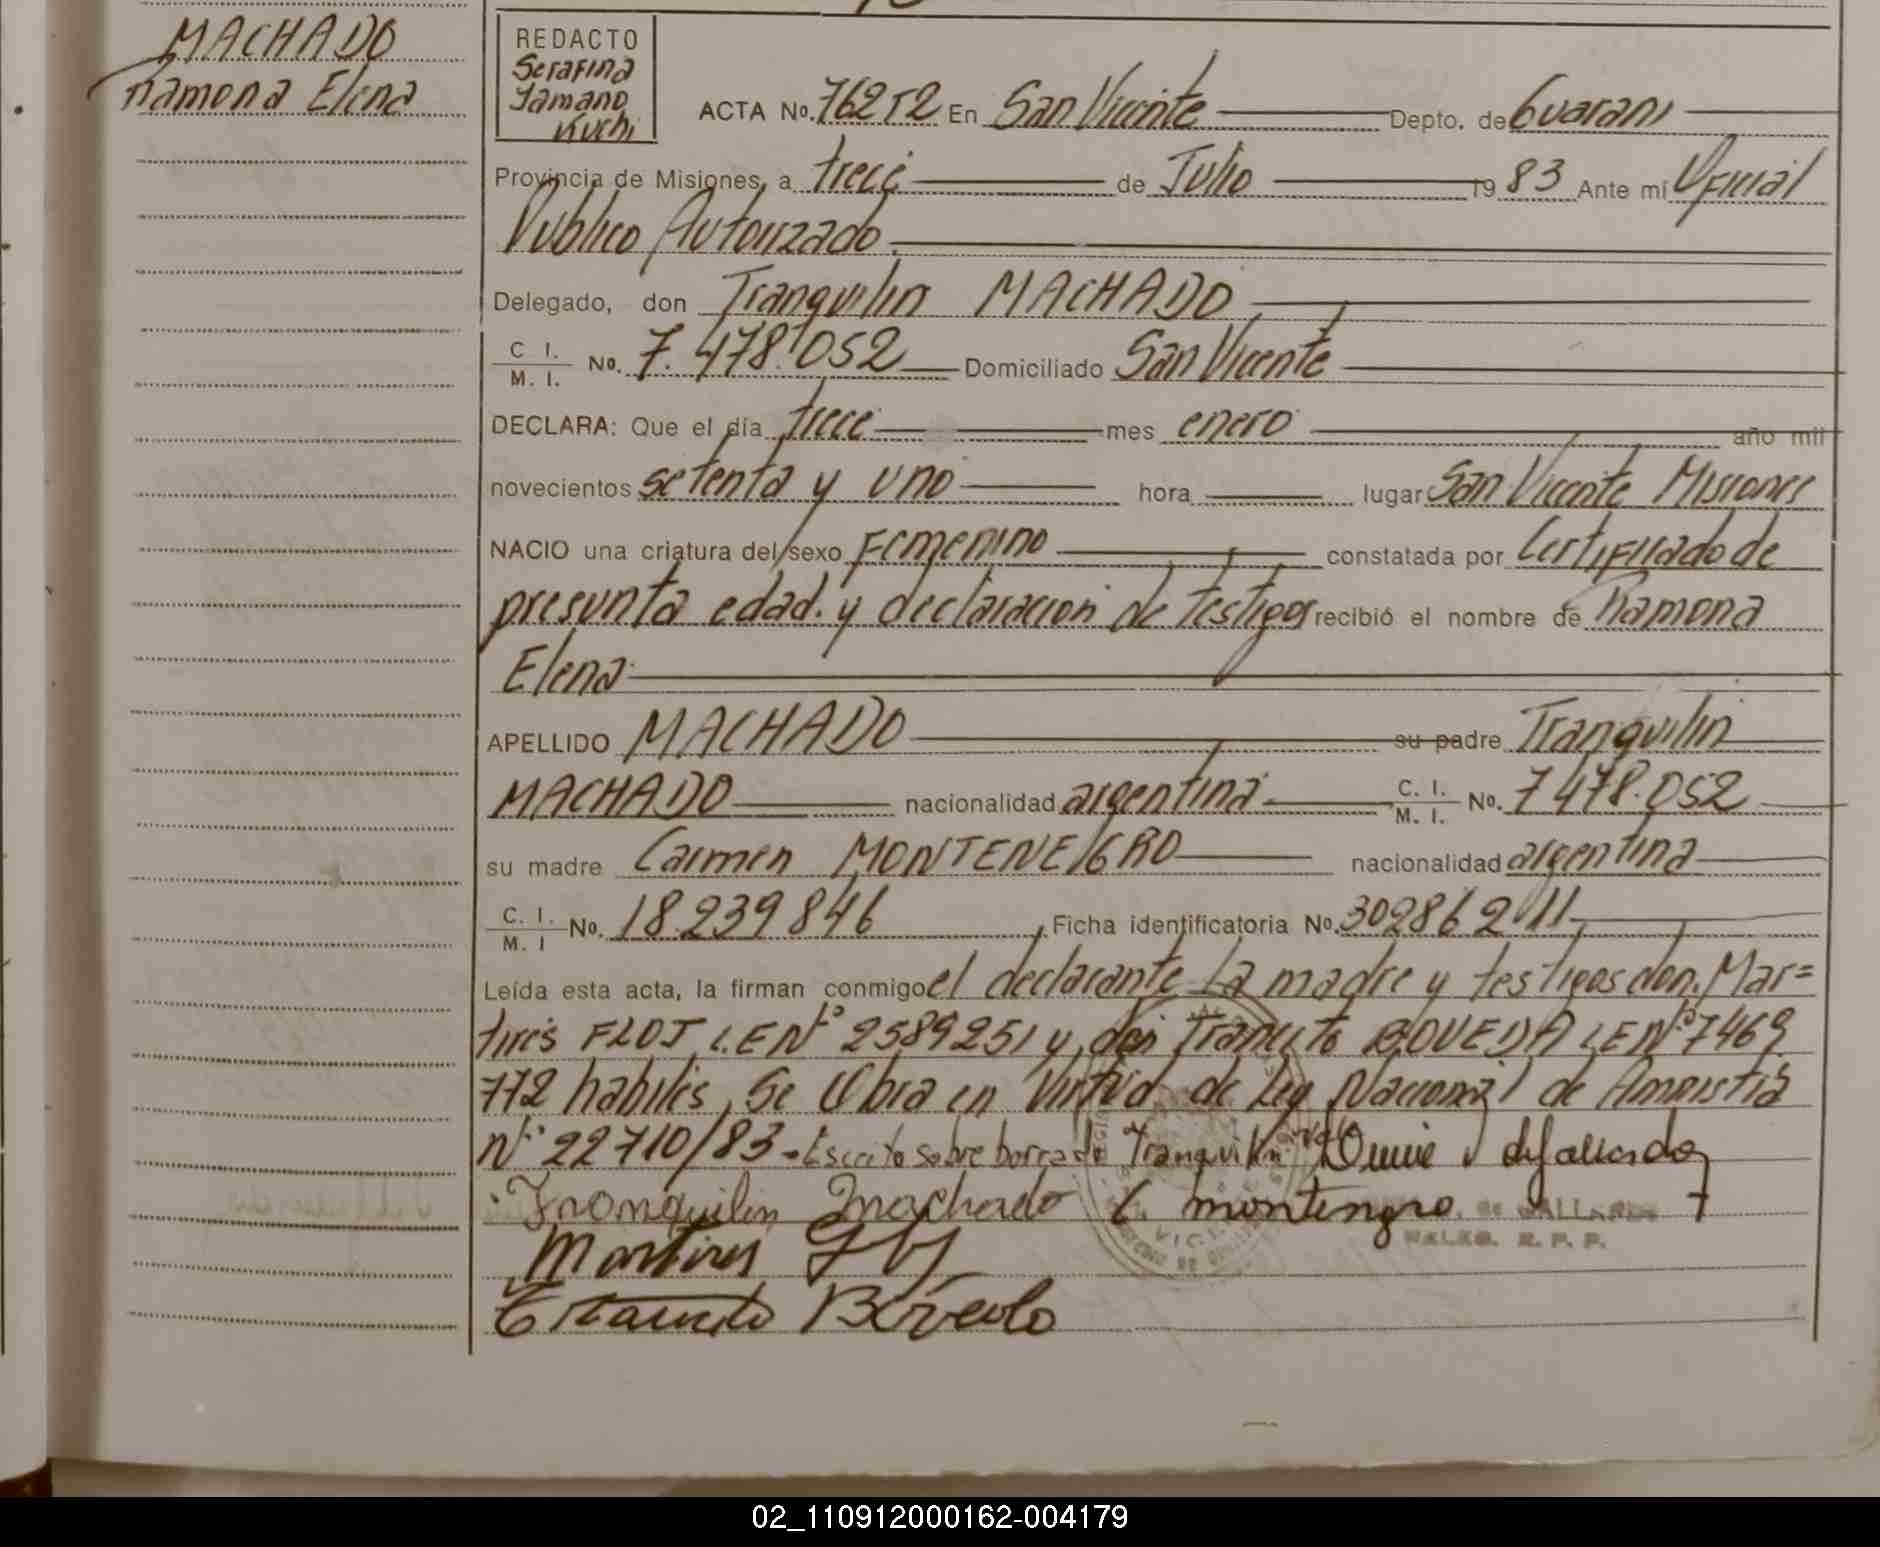 MACHADO
Ramona Elena
REDACTO
Serafina
Tamano
Kuchi
ACTA No. 76252 En San Vicente Depto. de Guarani
Provincia de Misiones, a trece de Julio 1983 Ante mí Oficial
Publico Autorizado
Delegado, don Tranquilin MACHADO,
C. I. / M. I. No. 7.478.052 Domiciliado San Vicente
DECLARA: Que el día trece mes enero año mil
novecientos setenta y uno hora lugar San Vicente Misiones
NACIO una criatura del sexo Femenino constatada por Certificado de
presunta edad. y declaracion de testigos recibió el nombre de Ramona
Elena
APELLIDO MACHADO su padre Tranquilin
MACHADO nacionalidad argentina C. I. / M. I. No. 7478.052
su madre Carmen MONTENEGRO nacionalidad argentina
C. I. / M. I No. 18.239846 Ficha identificatoria No. 30286211
Leída esta acta, la firman conmigo el declarante la madre y testigos don. Mar=
tires FLOJ L.E Nº 2589251 y don Transito BOVEDA L.E Nº 7469
772 habiles, Se Obra en Virtud de Ley Nacional de Amnistia
Nº 22710/83 - Escrito sobre borrado Tranquilin
Tranquilin Machado C. montenegro
Martires
Transito Boveda
02_110912000162-004179